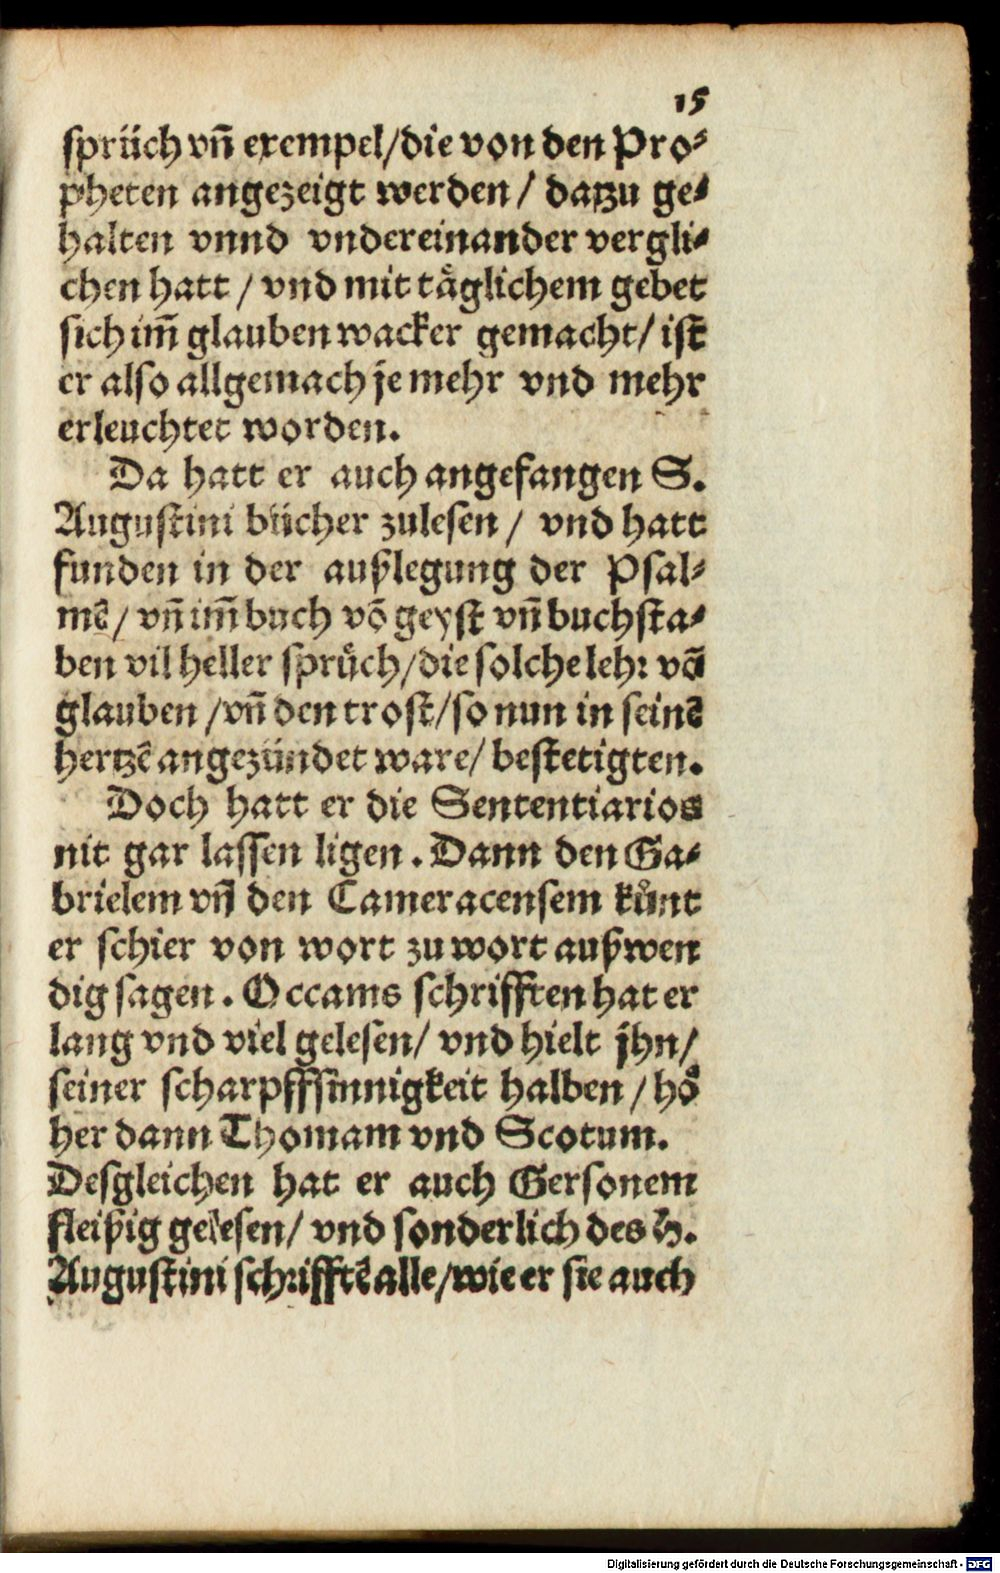 15
sprüch vñ exempel/die von den Pro⸗
pheten angezeigt werden/ datzu ge⸗
halten vnnd vndereinander vergli⸗
chen hatt / vnd mit taͤglichem gebet
sich im̃ glauben wacker gemacht/ ist
er also allgemach je mehr vnd mehr
erleuchtet worden.
Da hatt er auch angefangen S.
Augustini bücher zulesen / vnd hatt
funden in der außlegung der Psal⸗
mē/ vñ im̃ buch võ geyst vñ buchsta⸗
ben vil heller sprüch/die solche lehr võ
glauben /vñ den trost/so nun in seinē
hertzē angezündet ware/ bestetigten.
Doch hatt er die Sententiarios
nit gar lassen ligen. Dann den Ga⸗
brielem vñ den Cameracensem kůnt
er schier von wort zu wort außwen
dig sagen. Occams schrifften hat er
lang vnd viel gelesen/ vnd hielt jhn/
seiner scharpffsinnigkeit halben / hoͤ
her dann Thomam vnd Scotum.
Desgleichen hat er auch Gersonem
fleißig gelesen/ vnd sonderlich des H.
Augustini schrifftē alle/wie er sie auch
Digitalisierung gefördert durch die Deutsche Forschungsgemeinschaft - DFG